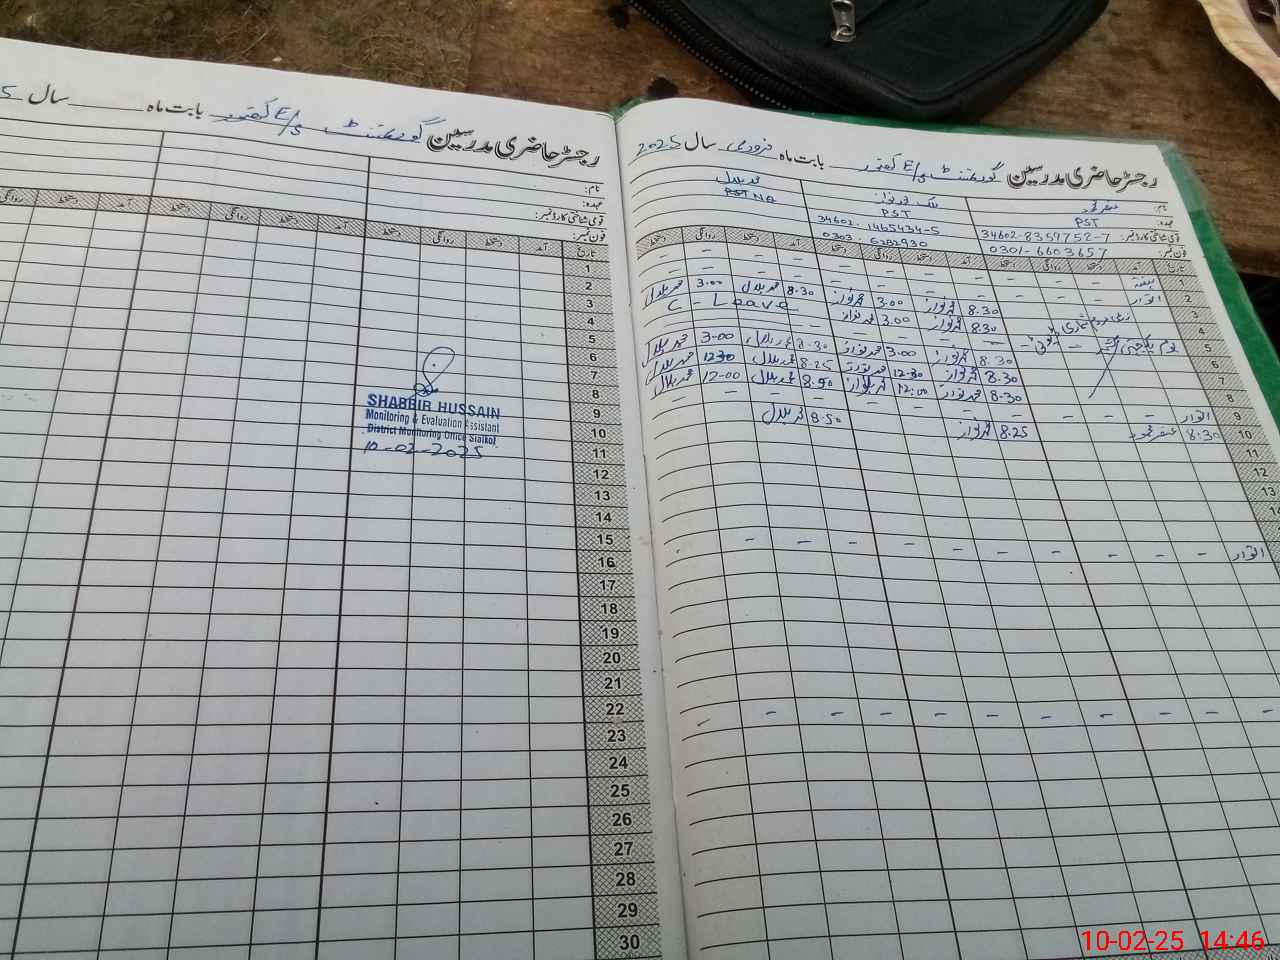 رجسٹر حاضری مدرسین گورنمنٹ E/S بابت ماہ فروری سال 2025
نام:
عہدہ: PST PST PST
قومی شناختی کارڈ نمبر: 34602-8359752-7 34602-1465434-5
فون نمبر: 0301-6603657 0303-6282930
تاریخ آمد دستخط روانگی دستخط آمد دستخط روانگی دستخط آمد دستخط روانگی دستخط
1 ہفتہ - - - - - - - - - -
2 اتوار - - - - - - - - - -
3 8.30 محمد نواز 3.00 محمد نواز 8.30 محمد بلال 3.00 محمد بلال
4 8.30 محمد نواز 3.00 محمد نواز C - Leave
5 یوم یکجہتی کشمیر - - - - - - - -
6 8.30 محمد نواز 3.00 محمد نواز 8.30 محمد بلال 3.00 محمد بلال
7 8.30 محمد نواز 12.30 محمد نواز 8.25 محمد بلال 12.30 محمد بلال
8 8.30 محمد نواز 12.00 محمد نواز 8.50 محمد بلال 12-00 محمد بلال
9 اتوار - - - - - - - - - -
10 8.30 8.25 محمد نواز 8.50 محمد بلال
11
12
13
اتوار - - - - - - - - - -
- - - - - - - - - -
رجسٹر حاضری مدرسین گورنمنٹ E/S بابت ماہ سال
نام:
عہدہ:
قومی شناختی کارڈ نمبر:
فون نمبر:
تاریخ آمد دستخط روانگی دستخط آمد دستخط روانگی دستخط آمد دستخط روانگی
1
2
3
4
5
6
7
8
9
10
11
12
13
14
15
16
17
18
19
20
21
22
23
24
25
26
27
28
29
30
SHABBIR HUSSAIN
Monitoring & Evaluation Assistant
District Monitoring Office Sialkot
10-02-2025
10-02-25 14:46